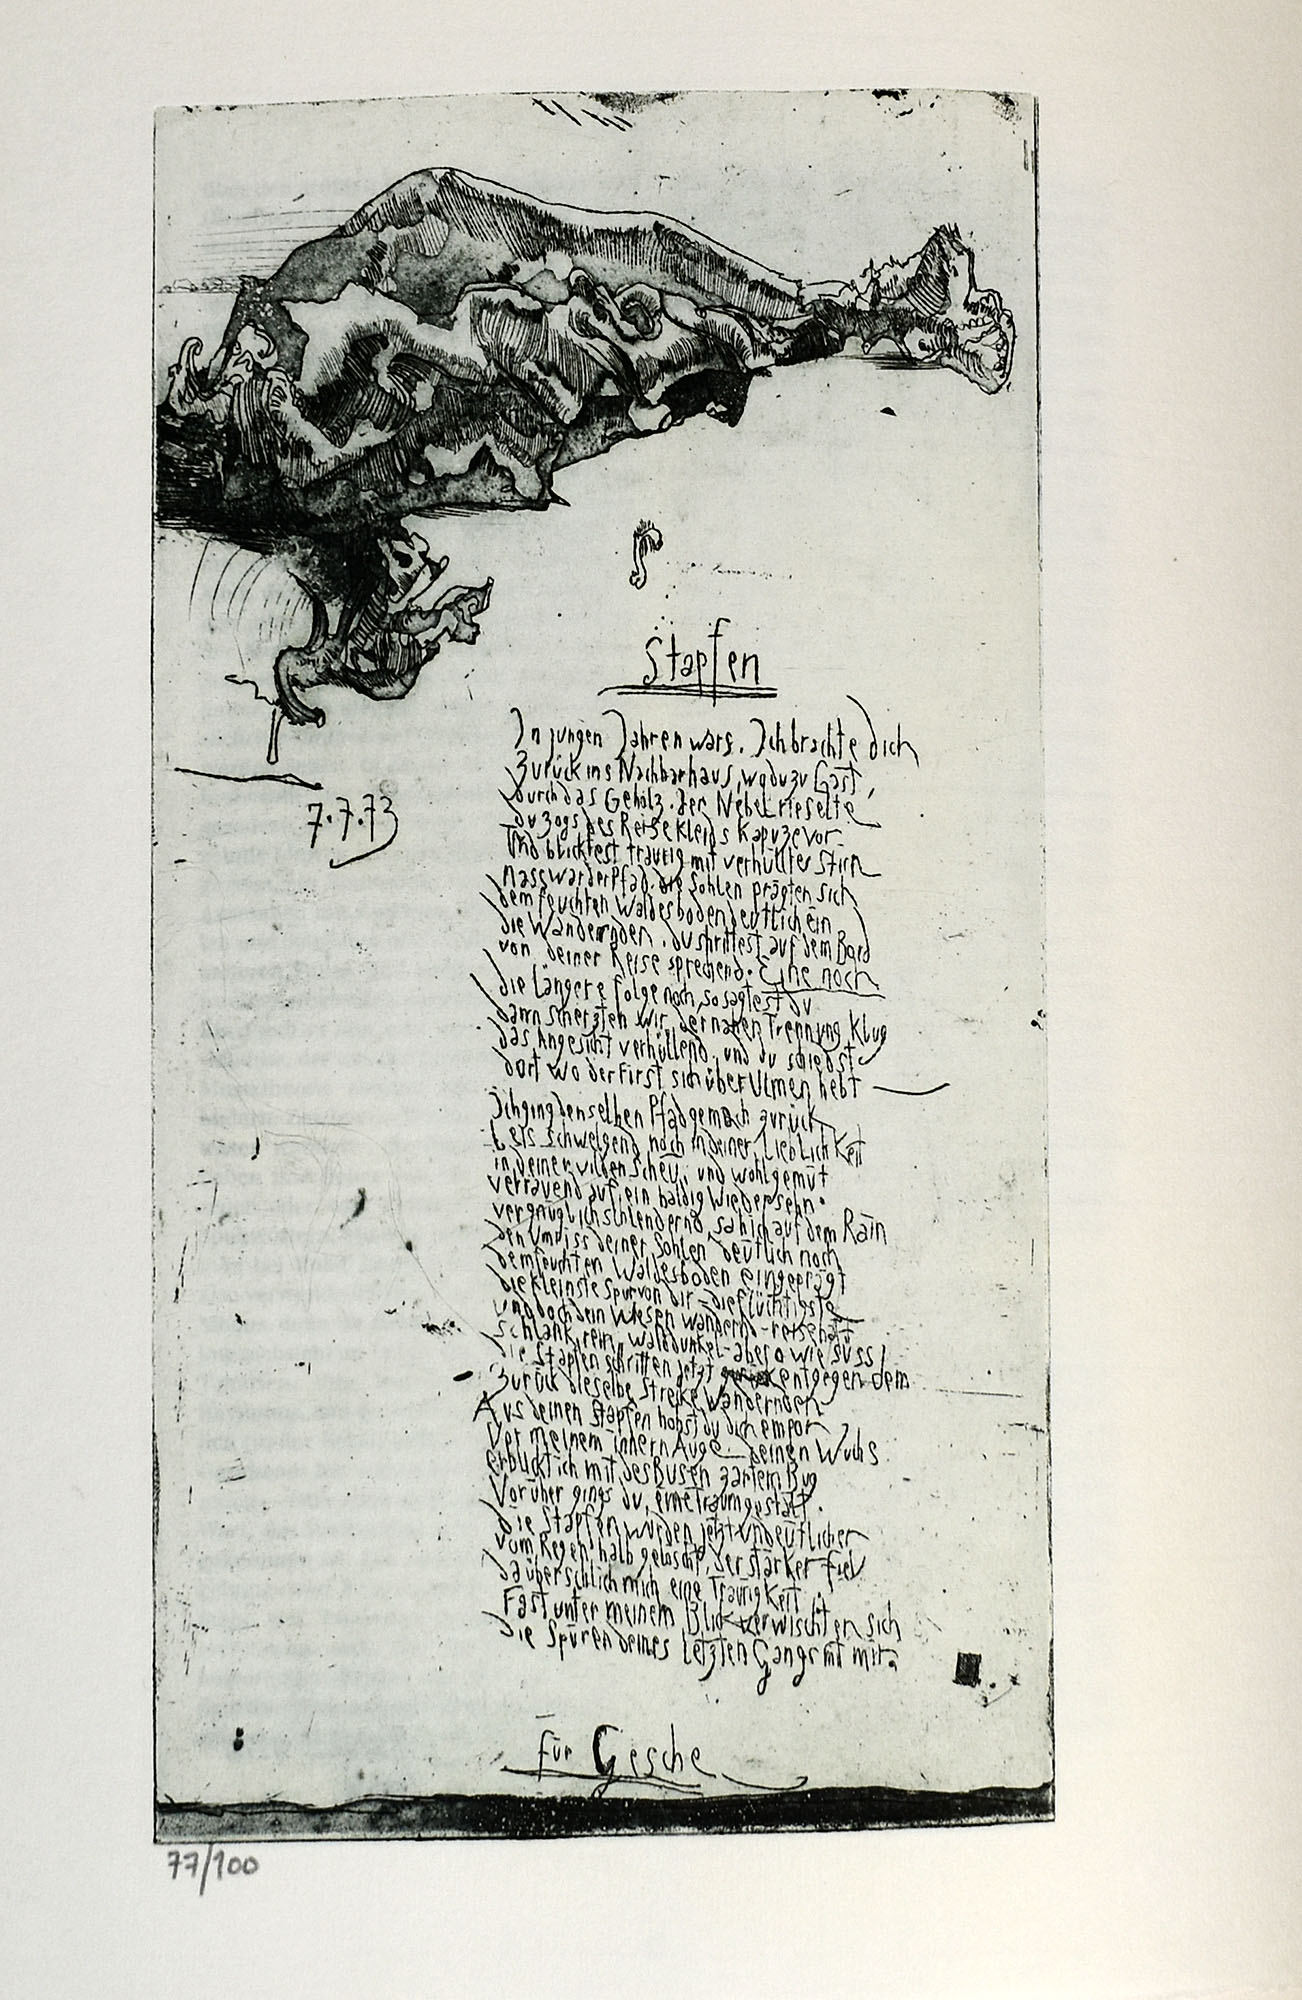 Stapfen
In jungen Jahren wars. Ich brachte dich
Zurück ins Nachbarhaus, wo du zu Gast,
durch das Gehölz. der Nebel rieselte
du zogs des Reisekleids Kapuze vor
Und blicktest traurig mit verhüllter Stirn
Nass war der Pfad. die Sohlen prägten sich
dem feuchten Waldesboden deutlich ein
die Wandernden. du shrittest auf dem Bord
von deiner Reise sprechend. Eine noch
die Längere folge noch, so sagtest du
dann scherzten wir, der nahen Trennung Klug
das Angesicht verhüllend. und du schiedst
dort wo der First sich über Ulmen hebt
Ich ging denselben Pfad gemach zurück
Leis schwelgend noch in deiner Lieblichkeit
in deiner wilden Scheu, und wohlgemut
vertrauend auf ein baldig Wiedersehn.
vergnüglich schlendernd, sah ich auf dem Rain
den Umriss deiner Sohlen deutlich noch
dem feuchten Waldesboden eingeprägt
die kleinste Spur von dir - die flüchtigste
und doch dein Wesen wandernd - reisehaft
schlank, rein, walddunkel - aber o wie süss!
die Stapfen schritten jetzt entgegen dem
Zurück dieselbe Streke Wandernden
Aus deinen Stapfen hobst du dich empor
Vor meinem innern Auge. Deinen Wuchs
erblickt ich mit des Busen zartem Bug
Vorüber gings du, eine Traumgestalt.
die Stapfen wurden jetzt undeutlicher
vom Regen halb gelöscht, der stärker fiel
da überschlich mich eine Traurigkeit
Fast unter meinem Blick verwischten sich
die Spuren deines letzten Gangs mit mir.
7.7.73
für Gesche
77/100